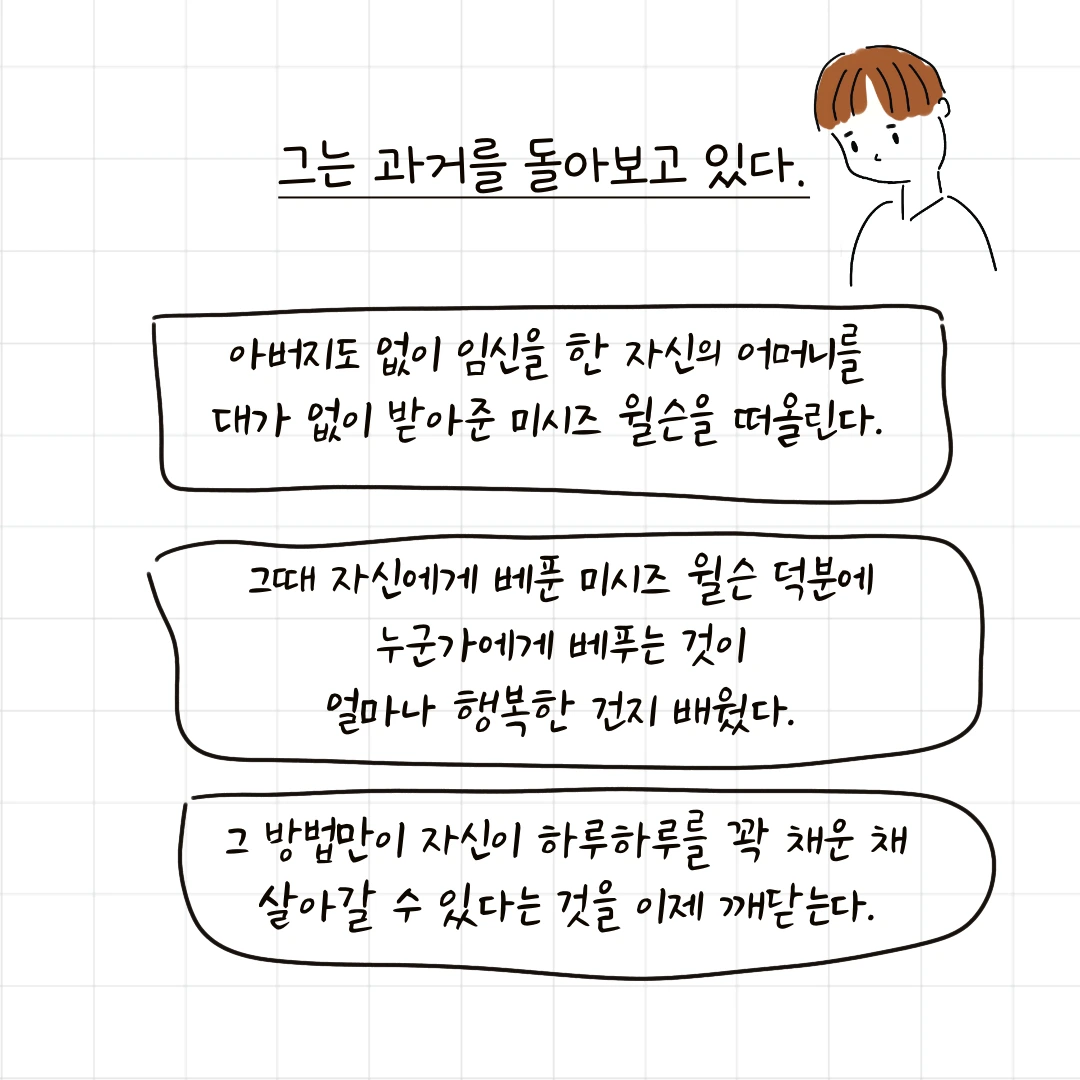 그는 과거를 돌아보고 있다.
아버지도 없이 임신을 한 자신의 어머니를
대가 없이 받아준 미시즈 윌슨을 떠올린다.
그때 자신에게 베푼 미시즈 윌슨 덕분에
누군가에게 베푸는 것이
얼마나 행복한 건지 배웠다.
그 방법만이 자신이 하루하루를 꽉 채운 채
살아갈 수 있다는 것을 이제 깨닫는다.